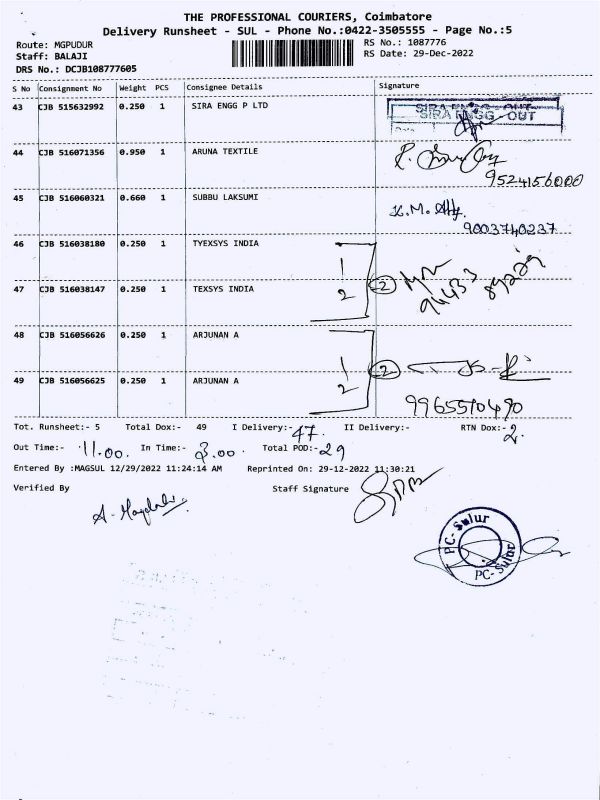 THE PROFESSIONAL COURIERS, Coimbatore
Delivery Runsheet - SUL - Phone No.:0422-3505555 - Page No.:5
Route: MGPUDUR
Staff: BALAJI
DRS No.: DCJB108777605
RS No.: 1087776
RS Date: 29-Dec-2022
S No Consignment No Weight PCS Consignee Details Signature
43 CJB 515632992 0.250 1 SIRA ENGG P LTD
SIRA ENGG - OUT
44 CJB 516071356 0.950 1 ARUNA TEXTILE
9524156000
45 CJB 516060321 0.660 1 SUBBU LAKSUMI
K.M.
9003740237
46 CJB 516038180 0.250 1 TYEXSYS INDIA 1
47 CJB 516038147 0.250 1 TEXSYS INDIA 2
2 94433 89229
48 CJB 516056626 0.250 1 ARJUNAN A 1
2
49 CJB 516056625 0.250 1 ARJUNAN A 2
9965510490
Tot. Runsheet:- 5 Total Dox:- 49 I Delivery:- 47. II Delivery:- RTN Dox:- 2.
Out Time:- 11.00. In Time:- 3.00. Total POD:- 29
Entered By :MAGSUL 12/29/2022 11:24:14 AM Reprinted On: 29-12-2022 11:30:21
Verified By Staff Signature
PC-Sulur
PC-Sulur